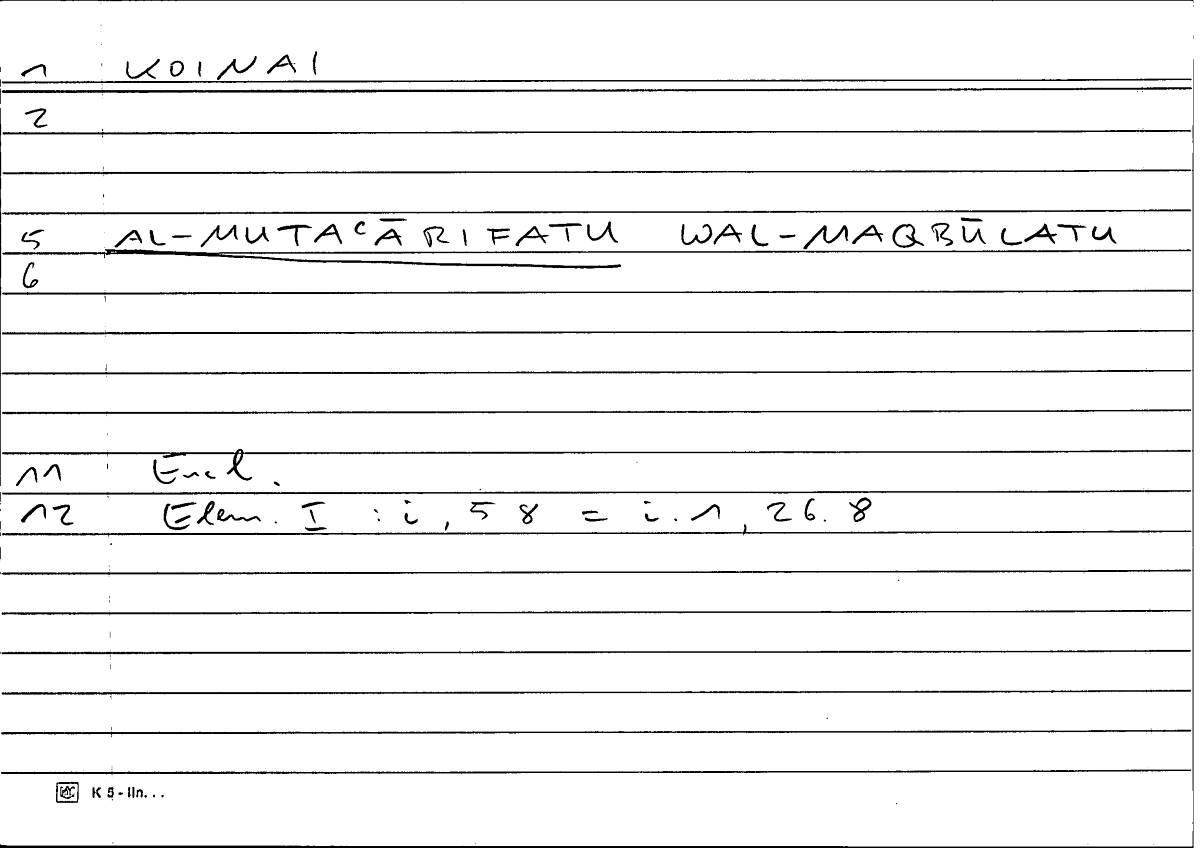 1 KOINAI
2
5 AL-MUTAᶜĀRIFATU WAL-MAQBŪLATU
6
11 Eucl.
12 Elem. I : i, 58 = i.1, 26.8
K 5 - lin...